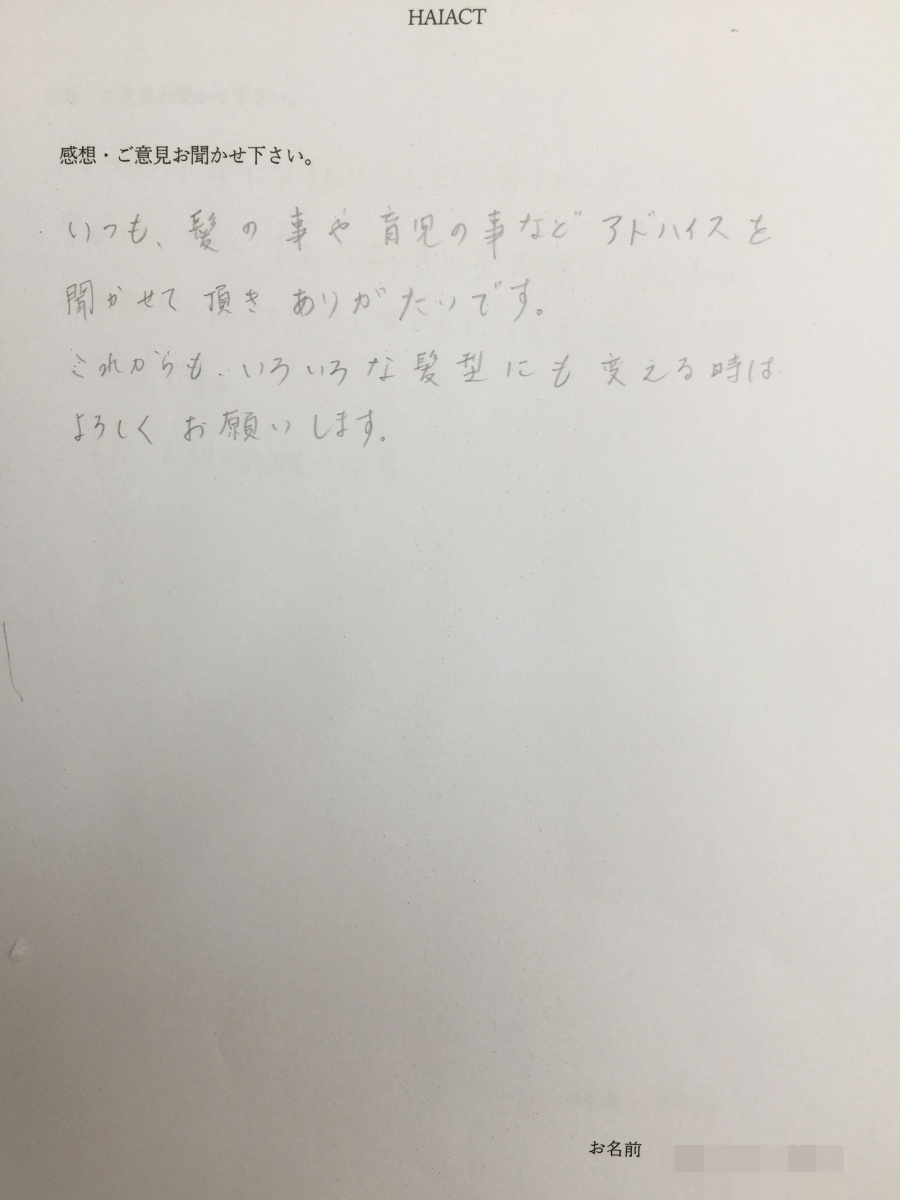 HAIACT
感想・ご意見お聞かせ下さい。
いつも、髪の事や育児の事など アドバイスを
聞かせて頂き ありがたいです。
これからも、いろいろな髪型にも変える時は
よろしくお願いします。
お名前